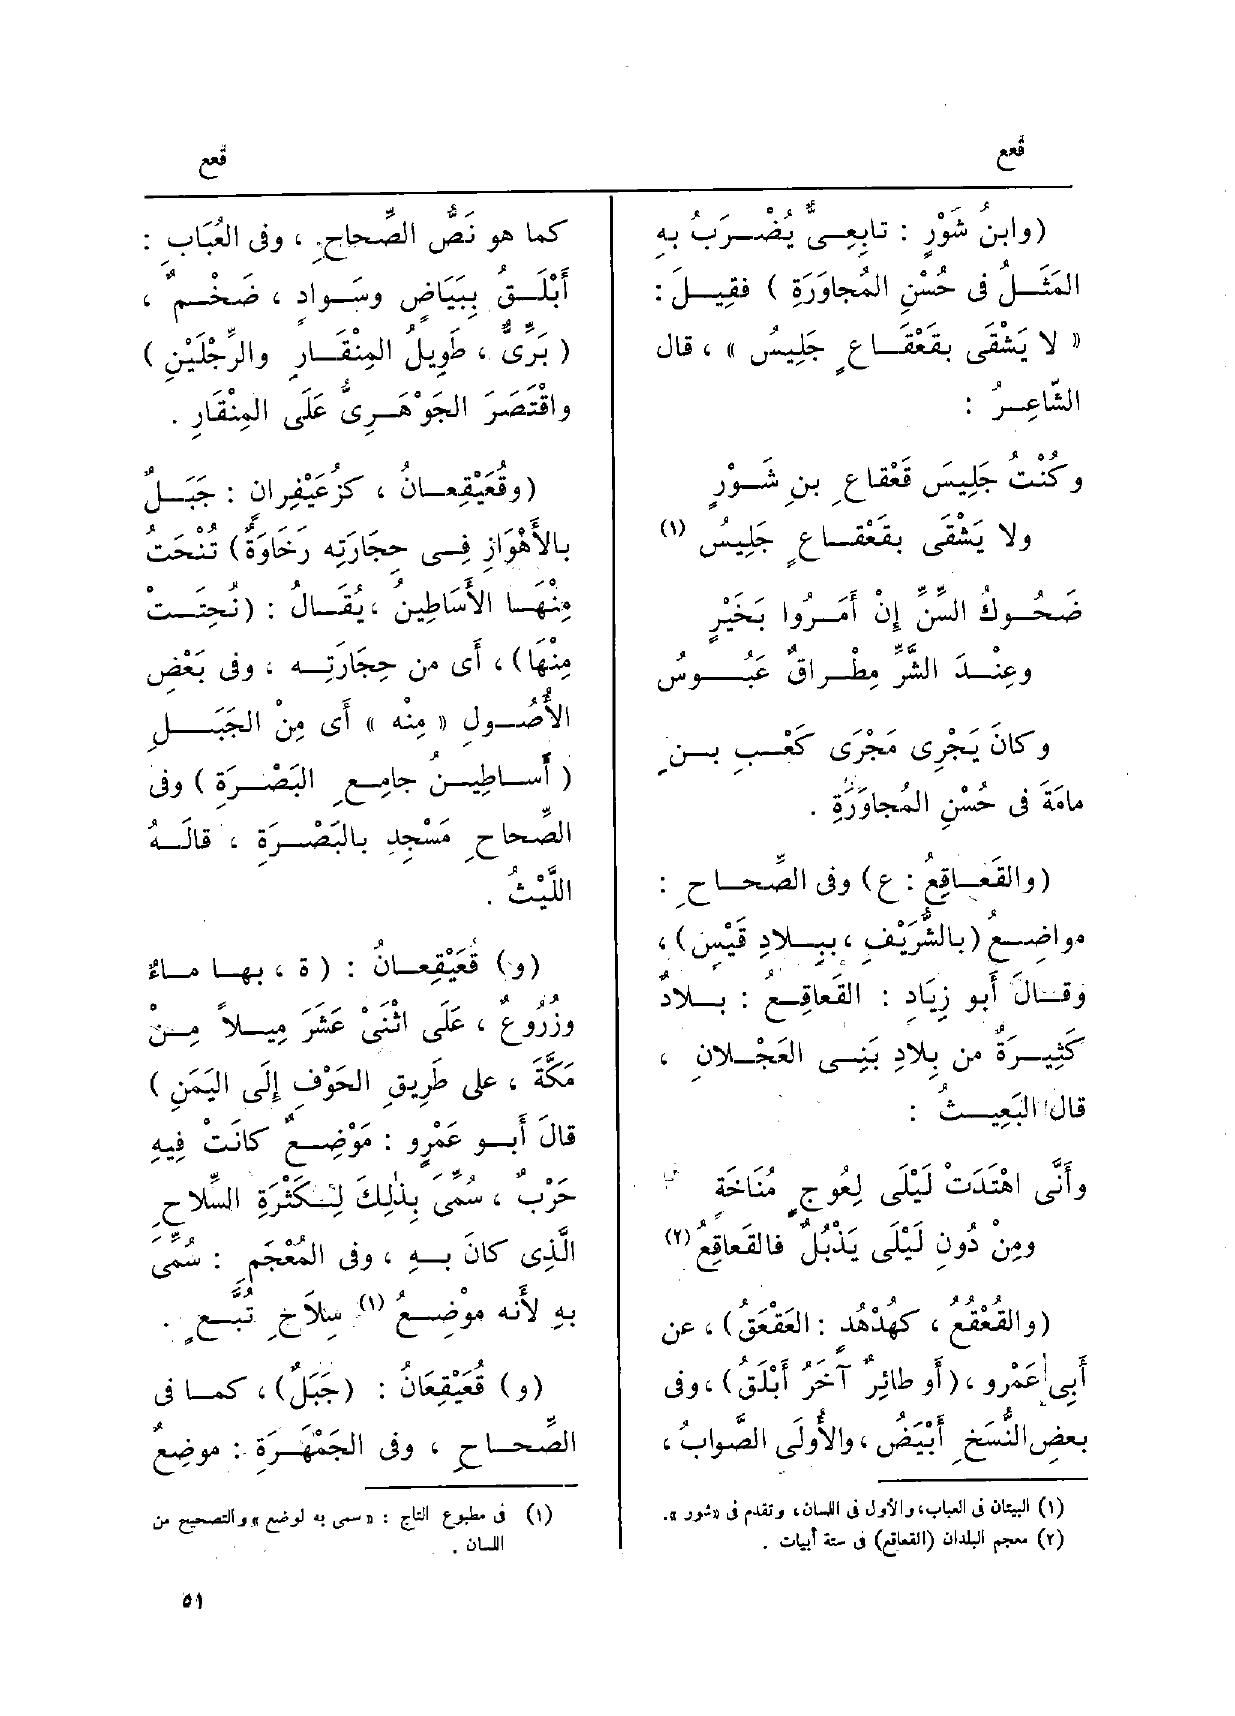 قعع
قعع
(وابنُ شَوْرٍ : تابِعِىٌّ يُضْرَبُ به
المَثَلُ فى حُسْنِ المُجاوَرَةِ ) فقِيلَ :
« لا يَشْقَى بقَعْقَاعٍ جَلِيسُ » ، قال
الشّاعِرُ :
وكُنْتُ جَلِيسَ قَعْقاعِ بنِ شَوْرٍ
ولا يَشْقَى بقَعْقَاعٍ جَلِيسُ (١)
ضَحُوكُ السِّنِّ إِنْ أَمَرُوا بخَيْرٍ
وعِنْدَ الشَّرِّ مِطْراقٌ عَبُوسُ
وكانَ يَجْرِى مَجْرَى كَعْبِ بنِ
مامَةَ فى حُسْنِ المُجاوَرَةِ .
(والقَعَاقِعُ : ع) وفى الصِّحاحِ :
مواضِعُ (بالشُّرَيْفِ ، ببِلادِ قَيْسٍ) ،
وقالَ أَبو زِيَادٍ : القَعاقِعُ : بلادٌ
كَثِيرَةٌ من بِلادِ بَنِى العَجْلانِ ،
قال البَعِيثُ :
وأَنَّى اهْتَدَتْ لَيْلَى لِعُوجٍ مُنَاخَةٍ
ومِنْ دُونِ لَيْلَى يَذْبُلٌ فالقَعاقِعُ (٢)
(والقُعْقُعُ ، كهُدْهُدٍ : العَقْعَقُ) ، عن
أَبِى عَمْرٍو ، (أَو طائِرٌ آخَرُ أَبْلَقُ) ، وفى
بعضِ النُّسَخِ أَبْيَضُ ، والأُولَى الصَّوابُ ،
(١) البيتان فى العباب، والأول فى اللسان، وتقدم فى «شور» .
(٢) معجم البلدان (القعاقع) فى ستة أبيات .
كما هو نَصُّ الصِّحاحِ ، وفى العُبَابِ :
أَبْلَقُ بِبَيَاضٍ وسَوادٍ ، ضَخْمٌ ،
( بَرِّىٌّ ، طَوِيلُ المِنْقَارِ والرِّجْلَيْنِ )
واقْتَصَرَ الجَوْهَرِىُّ عَلَى المِنْقَارِ .
(وقُعَيْقِعانُ ، كزُعَيْفِرانٍ : جَبَلٌ
بالأَهْوَازِ فِى حِجَارَتِه رَخَاوَةٌ) تُنْحَتُ
مِنْهَا الأَسَاطِينُ ، يُقَالُ : (نُحِتَتْ
مِنْهَا) ، أَى من حِجَارَتِه ، وفى بَعْضِ
الأُصُولِ « مِنْه » أَى مِنْ الجَبَلِ
( أَساطِينُ جامِعِ البَصْرَةِ ) وفى
الصِّحاحِ مَسْجِدِ بالبَصْرَةِ ، قالَهُ
اللَّيْثُ .
(و) قُعَيْقِعانُ : ( ة ، بها ماءٌ
وزُرُوعٌ ، عَلَى اثْنَىْ عَشَرَ مِيلاً مِنْ
مَكَّةَ ، على طَرِيقِ الحَوْفِ إِلَى اليَمَنِ )
قالَ أَبو عَمْرٍو : مَوْضِعٌ كانَتْ فِيهِ
حَرْبٌ ، سُمِّىَ بِذٰلِكَ لِكَثْرَةِ السِّلاحِ
الَّذِى كانَ بِهِ ، وفى المُعْجَمِ : سُمِّىَ
بِهِ لأَنه مَوْضِعُ (١) سِلاحِ تُبَّعٍ .
(و) قُعَيْقِعَانُ : (جَبَلٌ) ، كما فى
الصّحاحِ ، وفى الجَمْهَرَةِ : موضِعٌ
(١) فى مطبوع التاج : « سمى به لوضع » والتصحيح من
اللسان .
٥١